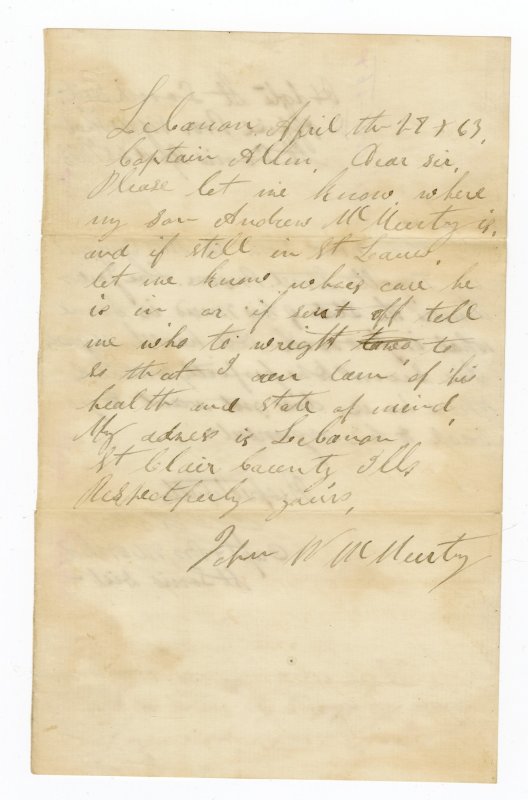 Lebanon April th 28 & 63,
Captain Allen, Dear sir,
Please let me know where
my son Andrew McMurty is,
and if still in St Louis,
let me know whais care he
is in or if sent off tell
me who to wreight to
so that I can larn of his
health and state of miend,
My adress is Lebanon
St Clair County Ills
Respectperly yours,
John W McMurty